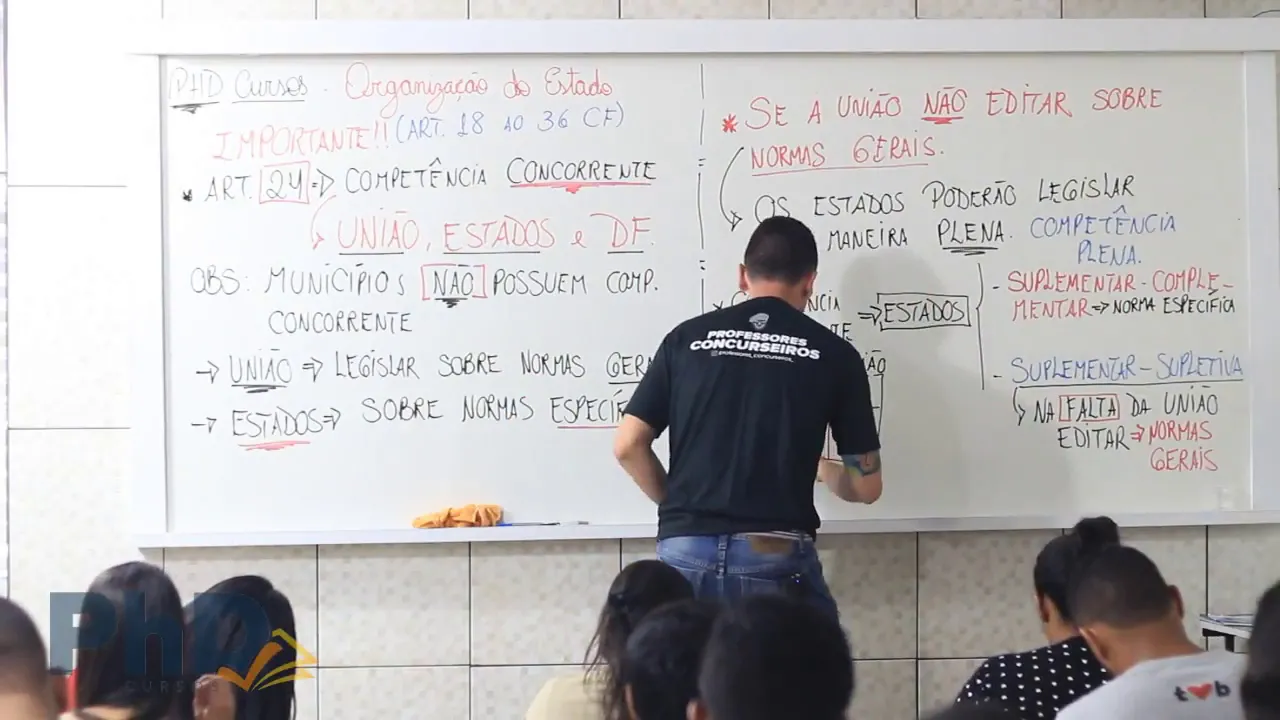 PHD Cursos. Organização do Estado
IMPORTANTE!! (ART. 18 AO 36 CF)
ART. 24 => COMPETÊNCIA CONCORRENTE
UNIÃO, ESTADOS e DF.
OBS: MUNICÍPIOS NÃO POSSUEM COMP.
CONCORRENTE
→ UNIÃO => LEGISLAR SOBRE NORMAS
→ ESTADOS => SOBRE NORMAS
* SE A UNIÃO NÃO EDITAR SOBRE
NORMAS GERAIS.
OS ESTADOS PODERÃO LEGISLAR
MANEIRA PLENA. COMPETÊNCIA
PLENA.
=> ESTADOS
- SUPLEMENTAR - COMPLE-
MENTAR => NORMA ESPECÍFICA
- SUPLEMENTAR - SUPLETIVA
NA FALTA DA UNIÃO
EDITAR => NORMAS
GERAIS
PROFESSORES
CONCURSEIROS
professores_concurseiros_
PhD
CURSOS
t♥b